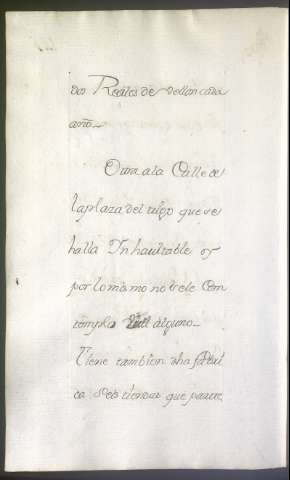 dos Reales de vellon cada
año.
Otra a la Calle de
la plaza del trigo que se
halla Inhavitable y
por lo mismo no se le Con
templa util alguno.
Tiene tambien dha fabri
ca seis tierras que